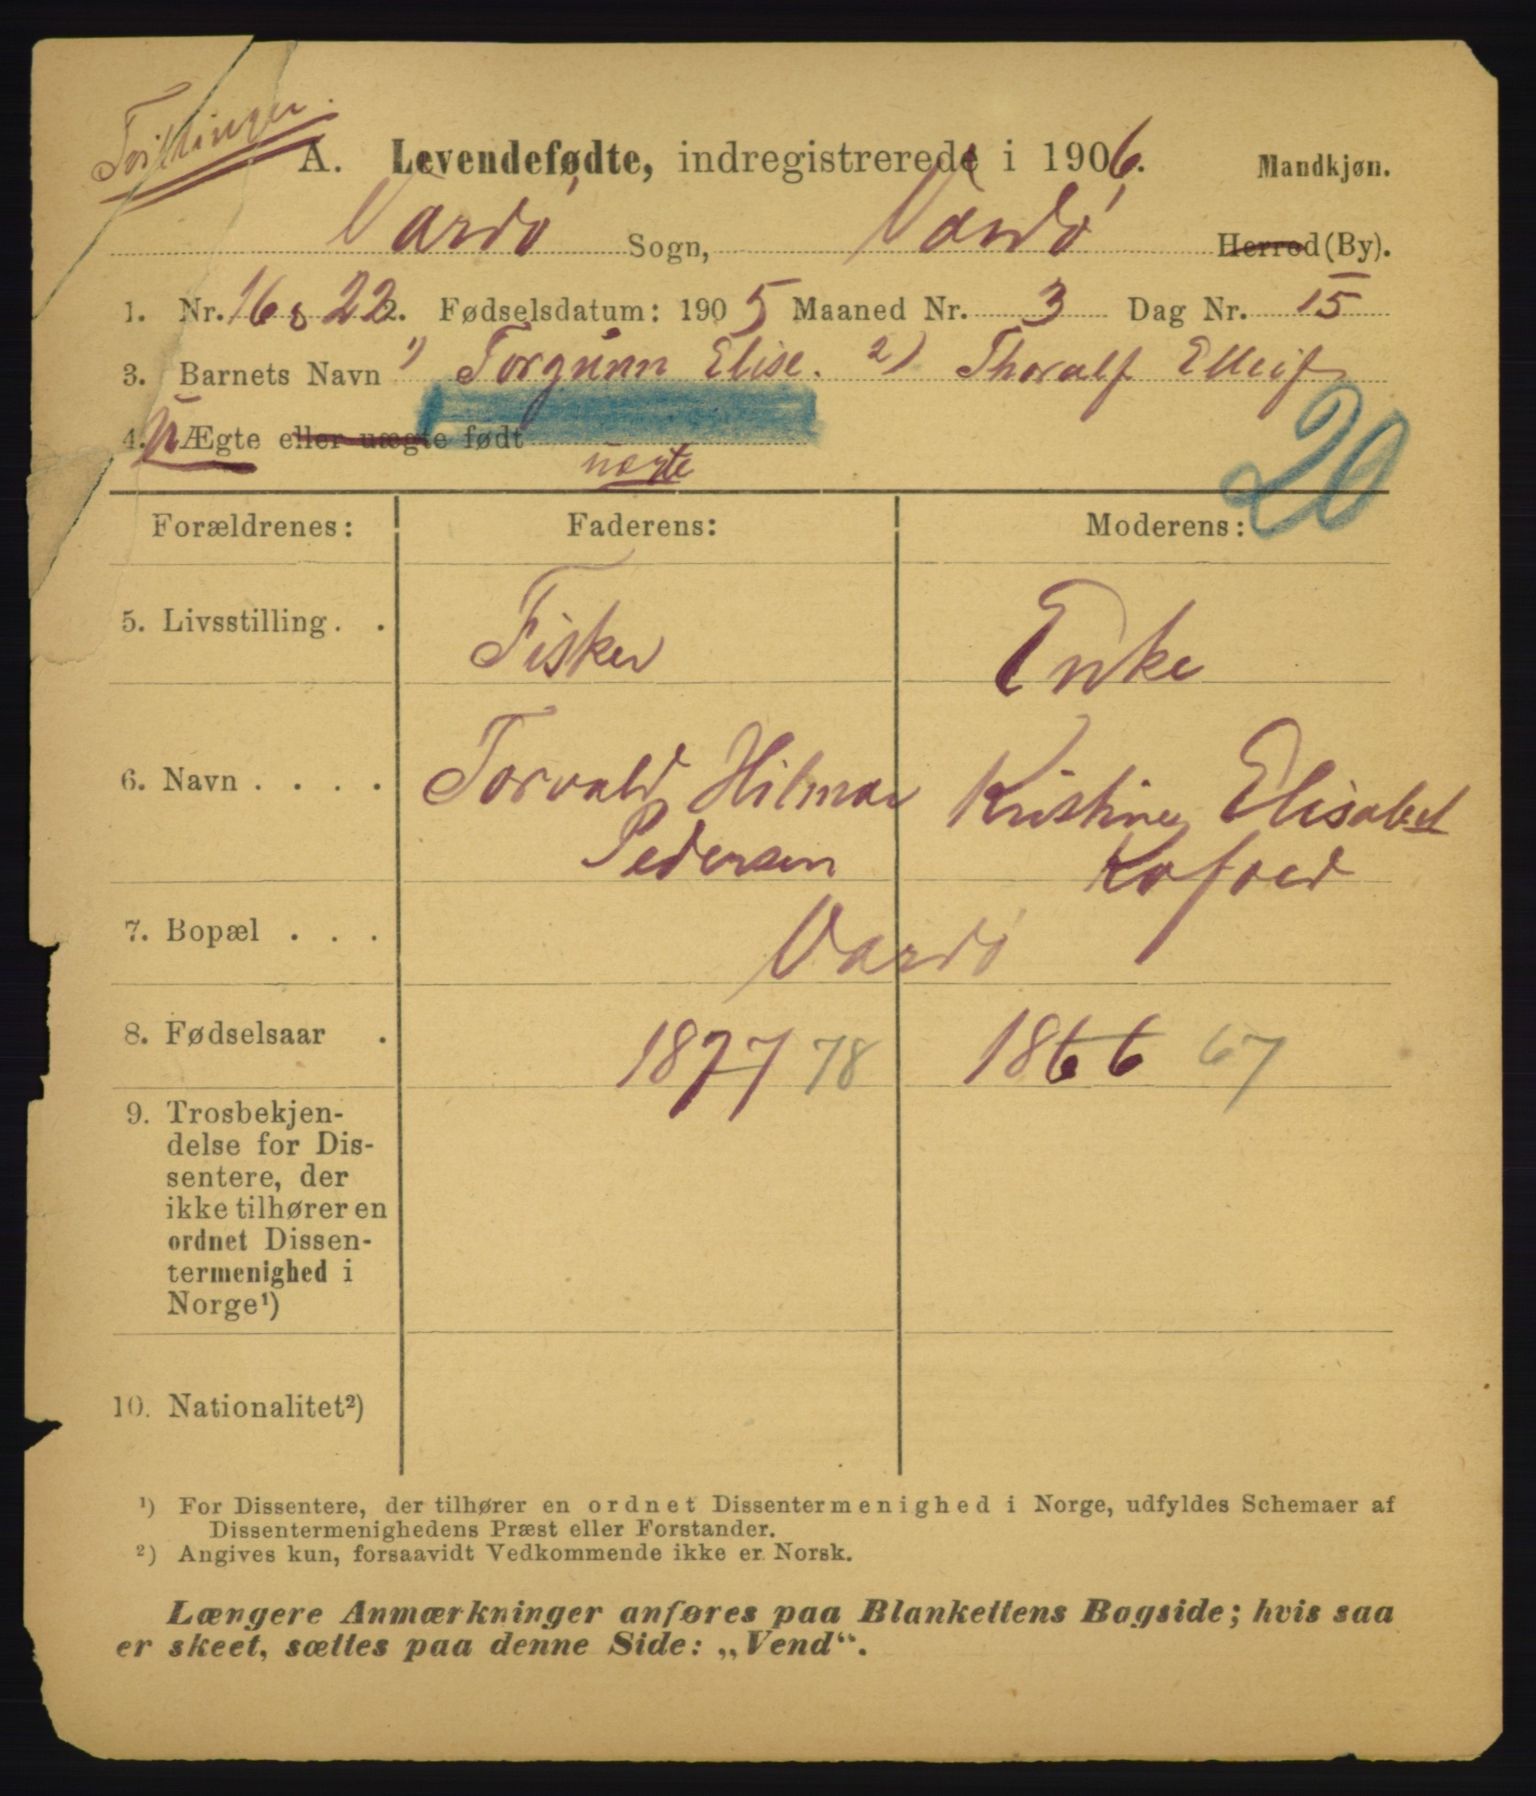 Tvillinger.
A. Levendefødte, indregistrerede i 1906. Mandkjøn.
Vardø Sogn, Vardø Herred (By).
1. Nr. 16 & 22 2. Fødselsdatum: 1905 Maaned Nr. 3 Dag Nr. 15
3. Barnets Navn 1) Torgunn Elise. 2) Thoralf Elleif
4. U Ægte eller uægte født
uægte
20
Forældrenes: Faderens: Moderens:
5. Livsstilling . . Fisker Enke
6. Navn . . . . Torvald Hilmar Pedersen Kristine Elisabet Kofoed
7. Bopæl . . . Vardø
8. Fødselsaar . 1877 78 1866 67
9. Trosbekjen-
delse for Dis-
sentere, der
ikke tilhører en
ordnet Dissen-
termenighed i
Norge¹)
10. Nationalitet²)
¹) For Dissentere, der tilhører en ordnet Dissentermenighed i Norge, udfyldes Schemaer af
Dissentermenighedens Præst eller Forstander.
²) Angives kun, forsaavidt Vedkommende ikke er Norsk.
Længere Anmærkninger anføres paa Blankettens Bagside; hvis saa
er skeet, sættes paa denne Side: „Vend“.